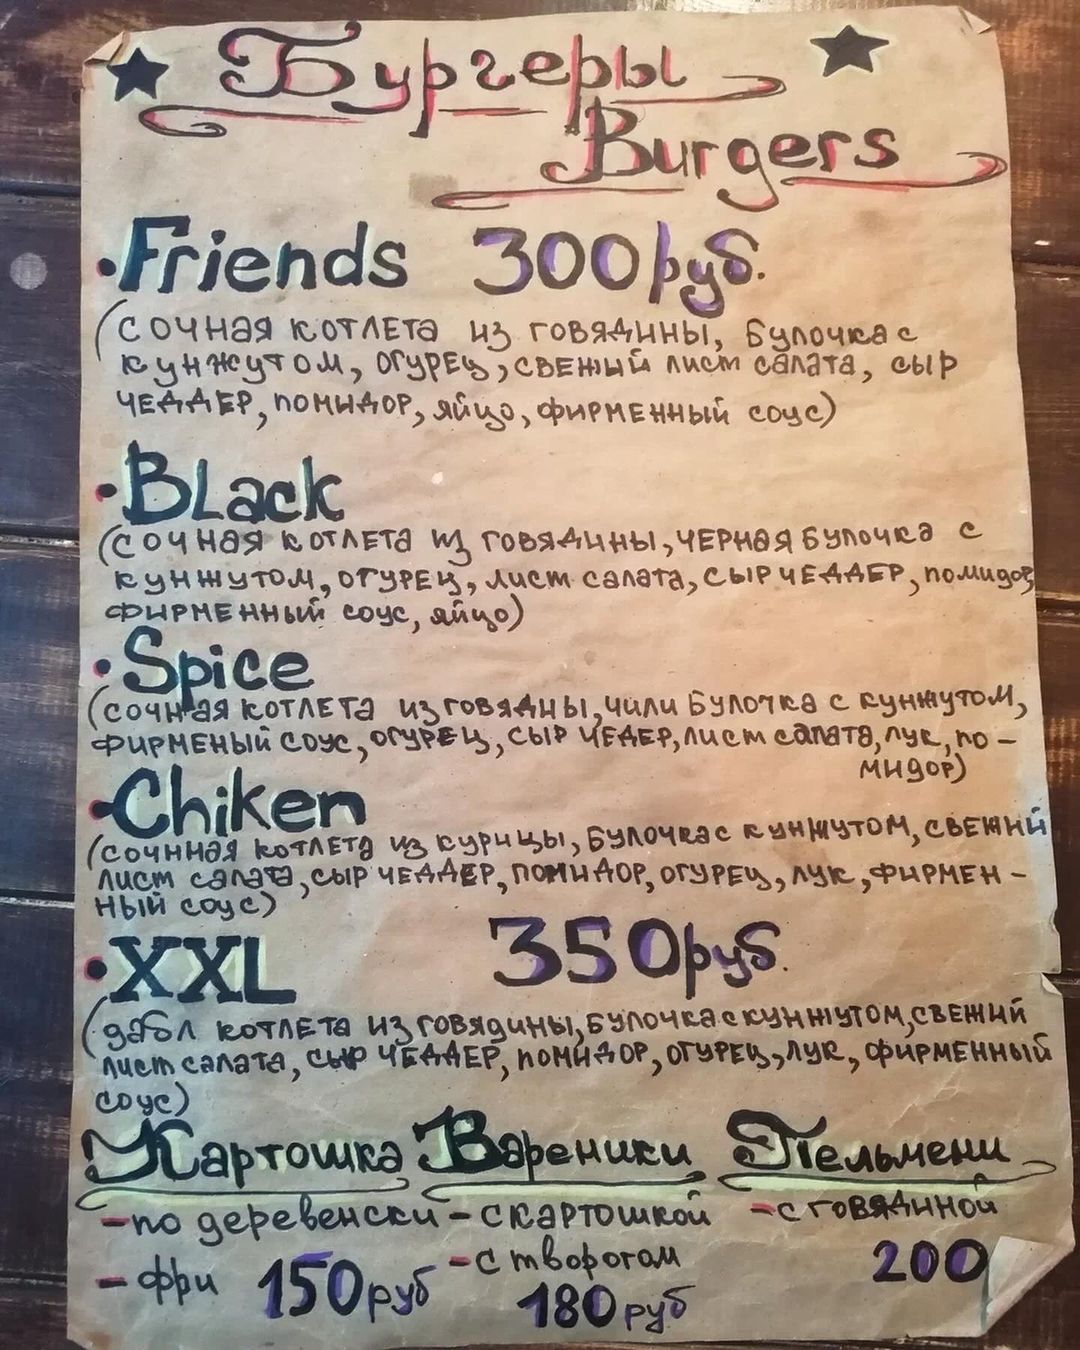 Бургеры
Burgers
• Friends 300 руб.
(сочная котлета из говядины, булочка с
кунжутом, огурец, свежый лист салата, сыр
чеддер, помидор, яйцо, фирменный соус)
• BLack
(сочная котлета из говядины, черная булочка с
кунжутом, огурец, лист салата, сыр чеддер, помидор,
фирменный соус, яйцо)
• Spice
(сочная котлета из говядны, чили булочка с кунжутом,
фирменый соус, огурец, сыр чедер, лист салата, лук, по-
мидор)
• Chiken
(сочнная котлета из курицы, булочка с кунжутом, свежий
лист салата, сыр чеддер, помидор, огурец, лук, фирмен-
ный соус)
• XXL 350 руб.
(дабл котлета из говядины, булочка с кунжутом, свежий
лист салата, сыр чеддер, помидор, огурец, лук, фирменный
соус)
Картошка Вареники Пельмени
- по деревенски - с картошкой - с говядиной
- фри 150 руб - с творогом 200
180 руб